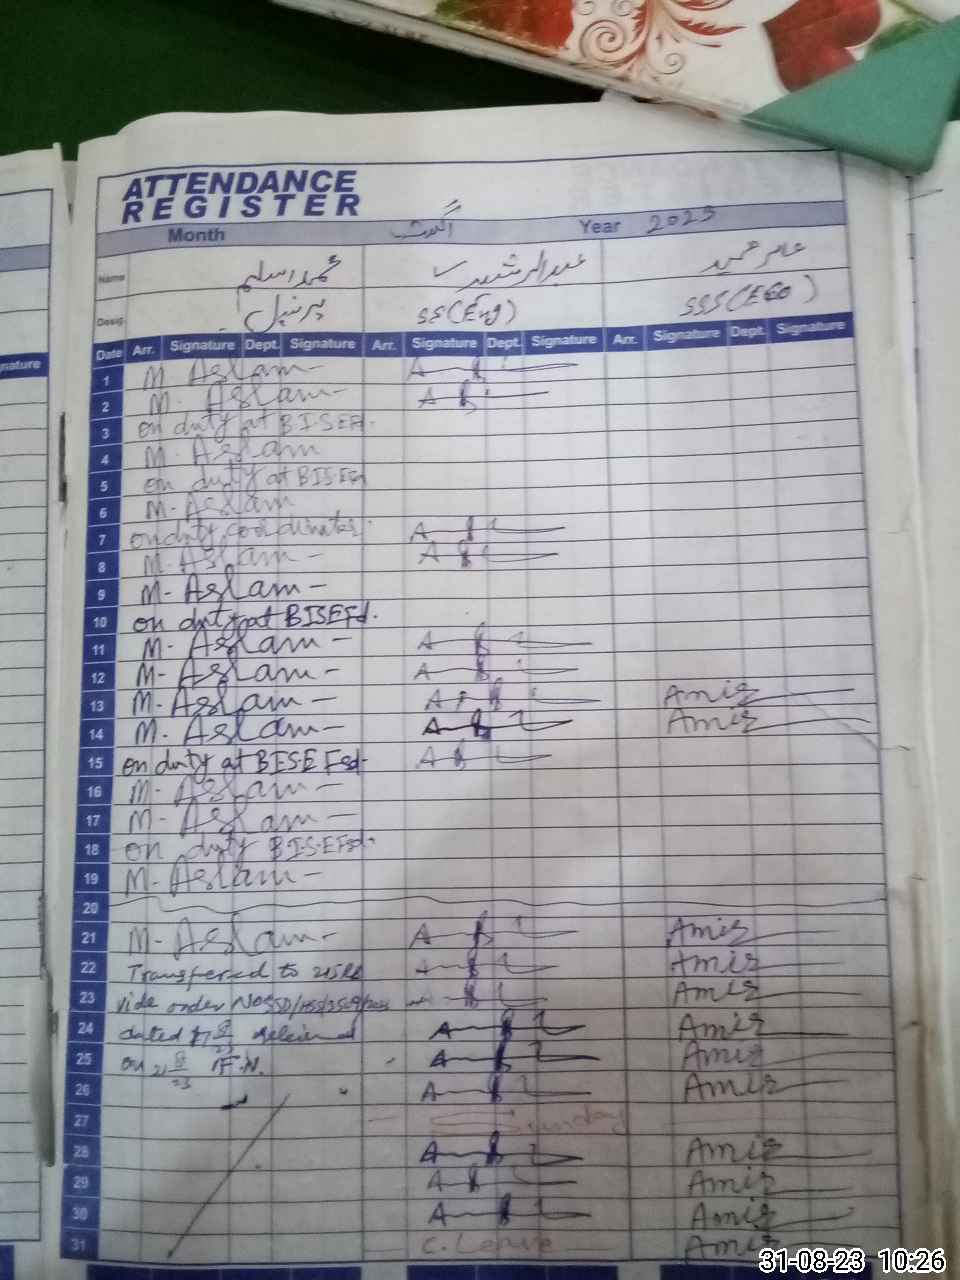 ATTENDANCE
REGISTER
Month اگست Year 2023
Name محمد اسلم عبدالرشید عامر حمید
Desig. پرنسپل SS(Eng) SSS(Eco)
nature
Date Arr. Signature Dept. Signature Arr. Signature Dept. Signature Arr. Signature Dept. Signature
1 M. Aslam
2 M. Aslam
3 on duty at B.I.S.E Fd.
4 M. Aslam
5 on duty at BISE Fd
6 M. Aslam
7 on duty coordinator.
8 M. Aslam
9 M. Aslam
10 on duty at BISE Fd.
11 M. Aslam
12 M. Aslam
13 M. Aslam Amir
14 M. Aslam Amir
15 on duty at BISE Fsd.
16 M. Aslam
17 M. Aslam
18 on duty B.I.S.E Fsd.
19 M. Aslam
20
21 M. Aslam Amir
22 Transferred to Amir
23 vide order No Amir
24 dated relieved Amir
25 on F.N. Amir
26 Amir
27 Sunday
28 Amir
29 Amir
30 Amir
31 C. Leave Amir
31-08-23 10:26